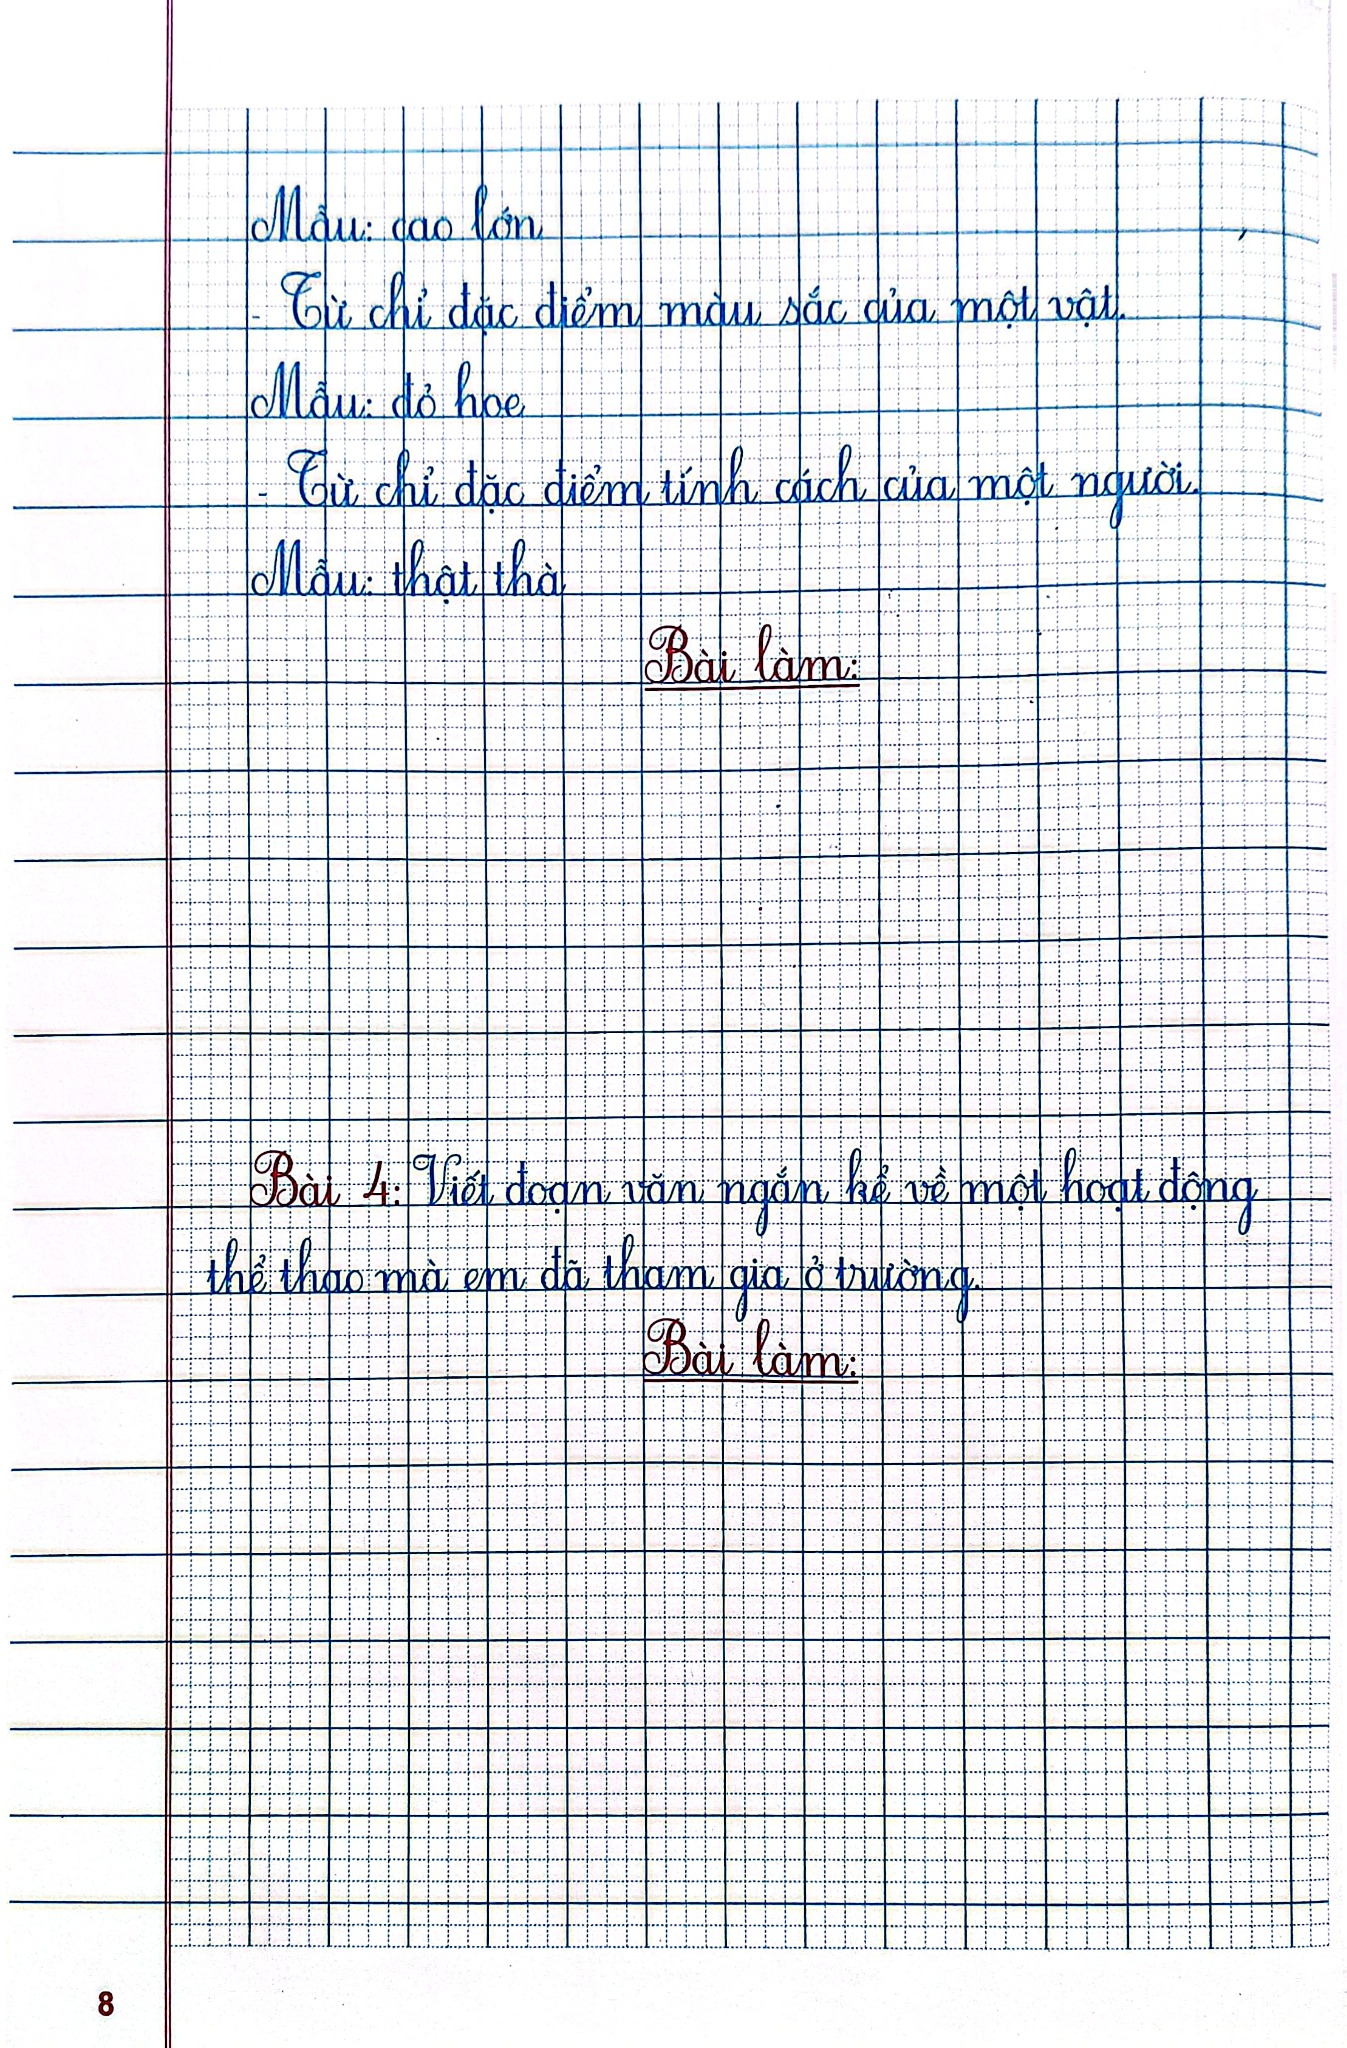 Mẫu: cao lớn
- Từ chỉ đặc điểm màu sắc của một vật.
Mẫu: đỏ hoe
- Từ chỉ đặc điểm tính cách của một người.
Mẫu: thật thà
Bài làm:
Bài 4: Viết đoạn văn ngắn kể về một hoạt động
thể thao mà em đã tham gia ở trường.
Bài làm:
8